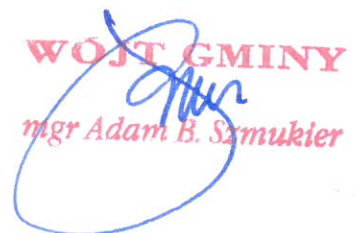 WÓJT GMINY
mgr Adam B. Szmukier